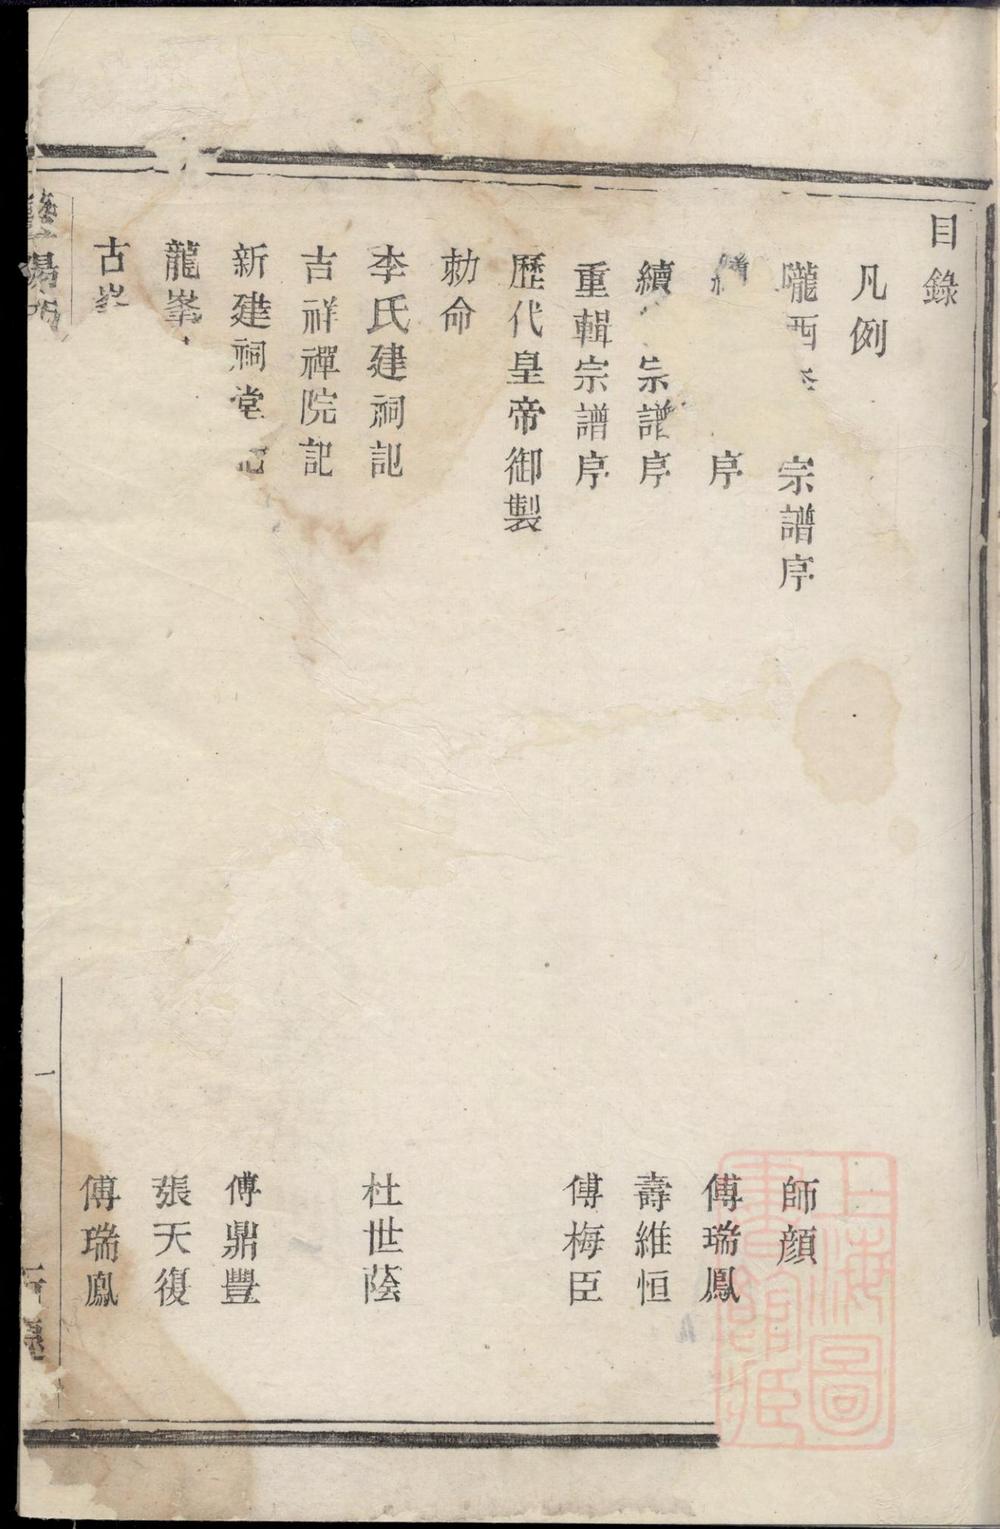 目錄
凡例
隴西 宗譜序 師顔
序 傅瑞鳳
續 宗譜序 壽維恒
重輯宗譜序 傅梅臣
歷代皇帝御製
勅命
李氏建祠記 杜世蔭
吉祥禪院記
新建祠堂記 傅鼎豐
龍峯 張天復
古 傅瑞鳳
一
上海圖書館藏